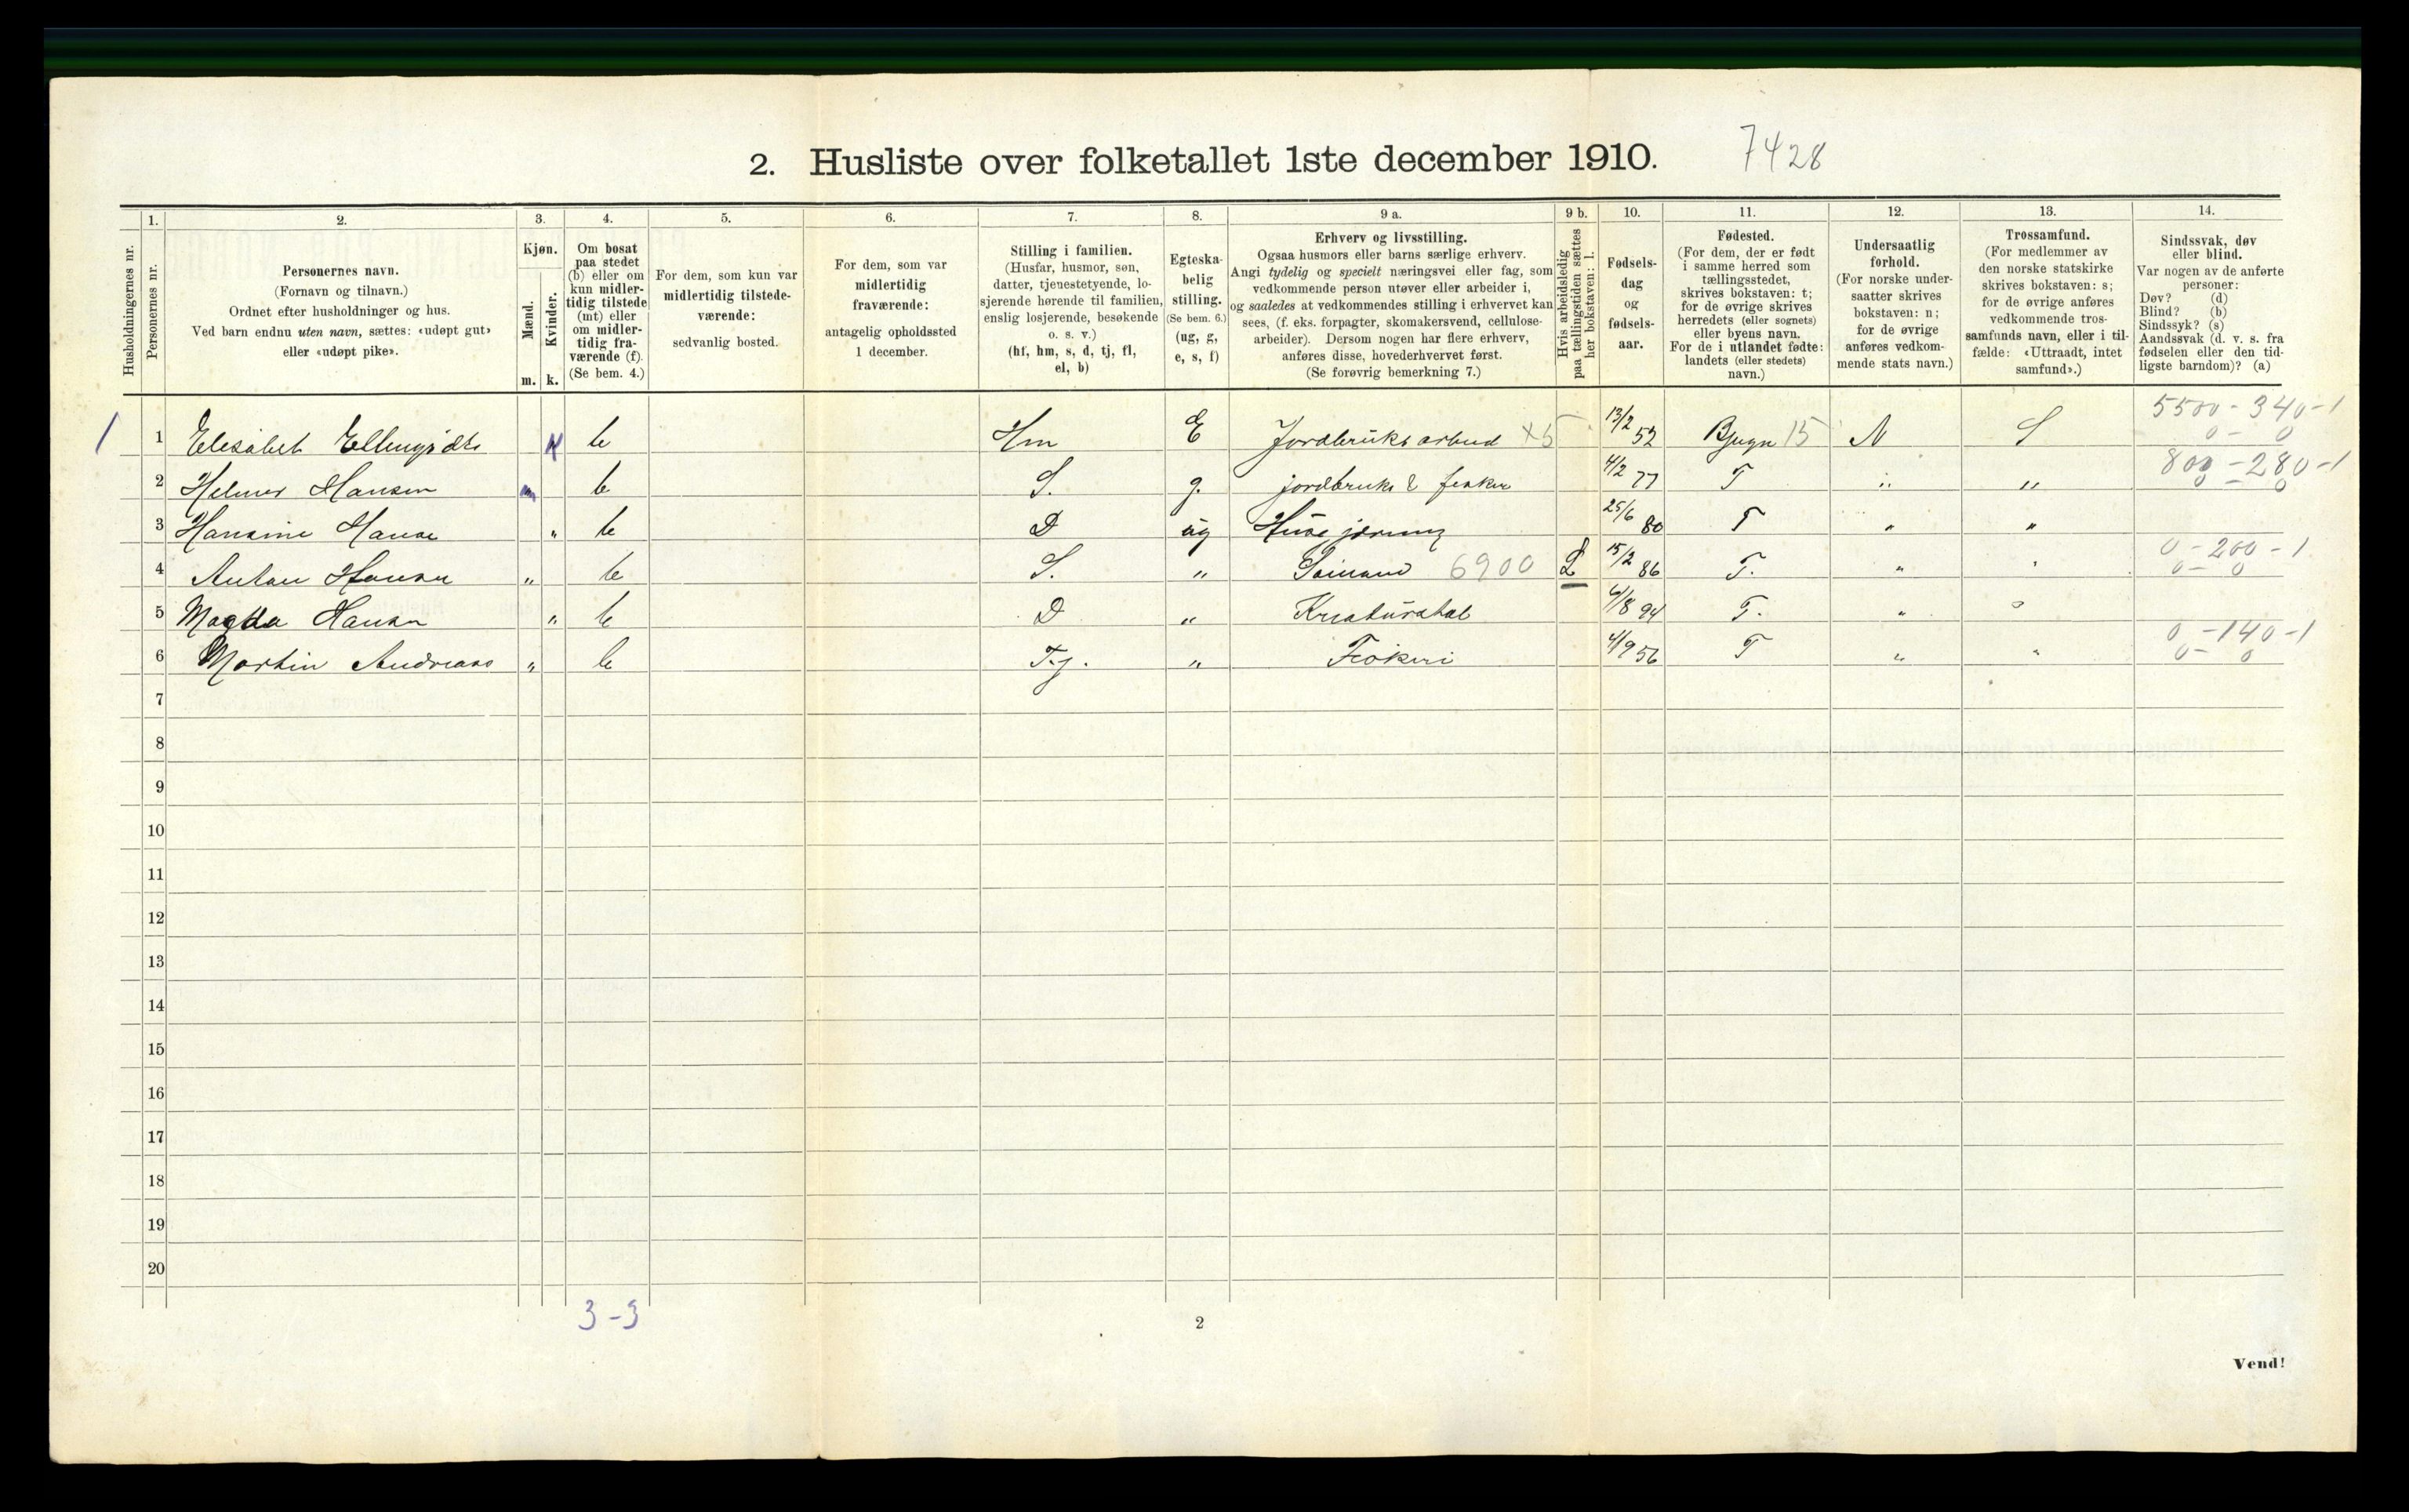 2. Husliste over folketallet 1ste december 1910. 7428
Husholdningernes nr.
1.
Personernes nr.
2.
Personernes navn.
(Fornavn og tilnavn.)
Ordnet efter husholdninger og hus.
Ved barn endnu uten navn, sættes: «udøpt gut»
eller «udøpt pike».
3.
Kjøn.
Mænd.
Kvinder.
m. k.
4.
Om bosat
paa stedet
(b) eller om
kun midler-
tidig tilstede
(mt) eller
om midler-
tidig fra-
værende (f).
(Se bem. 4.)
5.
For dem, som kun var
midlertidig tilstede-
værende:
sedvanlig bosted.
6.
For dem, som var
midlertidig
fraværende:
antagelig opholdssted
1 december.
7.
Stilling i familien.
(Husfar, husmor, søn,
datter, tjenestetyende, lo-
sjerende hørende til familien,
enslig losjerende, besøkende
o. s. v.)
(hf, hm, s, d, tj, fl,
el, b)
8.
Egteska-
belig
stilling.
(Se bem. 6.)
(ug, g,
e, s, f)
9 a.
Erhverv og livsstilling.
Ogsaa husmors eller barns særlige erhverv.
Angi tydelig og specielt næringsvei eller fag, som
vedkommende person utøver eller arbeider i,
og saaledes at vedkommendes stilling i erhvervet kan
sees, (f. eks. forpagter, skomakersvend, cellulose-
arbeider). Dersom nogen har flere erhverv,
anføres disse, hovederhvervet først.
(Se forøvrig bemerkning 7.)
9 b.
Hvis arbeidsledig
paa tællingstiden sættes
her bokstaven: l.
10.
Fødsels-
dag
og
fødsels-
aar.
11.
Fødested.
(For dem, der er født
i samme herred som
tællingsstedet,
skrives bokstaven: t;
for de øvrige skrives
herredets (eller sognets)
eller byens navn.
For de i utlandet fødte:
landets (eller stedets)
navn.)
12.
Undersaatlig
forhold.
(For norske under-
saatter skrives
bokstaven: n;
for de øvrige
anføres vedkom-
mende stats navn.)
13.
Trossamfund.
(For medlemmer av
den norske statskirke
skrives bokstaven: s;
for de øvrige anføres
vedkommende tros-
samfunds navn, eller i til-
fælde: «Uttraadt, intet
samfund».)
14.
Sindssvak, døv
eller blind.
Var nogen av de anførte
personer:
Døv? (d)
Blind? (b)
Sindssyk? (s)
Aandssvak (d. v. s. fra
fødselen eller den tid-
ligste barndom)? (a)
5500 - 340 - 1
1 1 Elesabet K b Hm E Jordbruks X5 13/2 52 Bjugn 15 N S 0 - 0
800 - 280 - 1
2 Helmer Hansen m b S. g. jordbruks & 4/2 77 T " " 0 - 0
3 Hansine " b D ug 25/6 80 T " "
0 - 200 - 1
4 Anton Hansen " b S. " 6900 L 15/2 86 T. " " 0 - 0
5 Magda Hansen " b D " 94 T. "
0 - 140 - 1
6 Martin " b Tj. " Fiskeri 4/9 56 T " " 0 - 0
7
8
9
10
11
12
13
14
15
16
17
18
19
20
3 - 3
2
Vend!